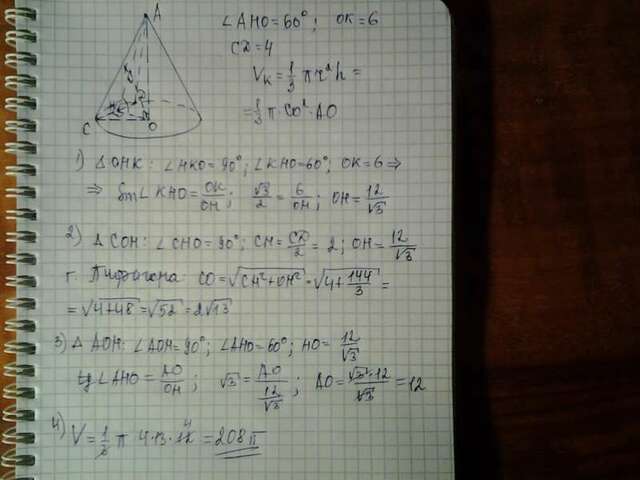 A
C
O
∠AHO=60°; OK=6
CD=4
Vк=1/3 π r² h =
=1/3 π·CO²·AO
1) △OHK: ∠HKO=90°; ∠KHO=60°; OK=6 ⇒
⇒ Sin∠KHO=OK/OH; √3/2=6/OH; OH=12/√3
2) △COH: ∠CHO=90°; CH=CD/2=2; OH=12/√3
т. Пифагора: CO=√(CH²+OH²)=√(4+144/3)=
=√(4+48)=√52=2√13
3) △AOH: ∠AOH=90°; ∠AHO=60°; HO=12/√3
tg∠AHO=AO/OH; √3=AO/(12/√3); AO=√3·12/√3=12
4) V=1/3 π 4·13·12 4 =208π